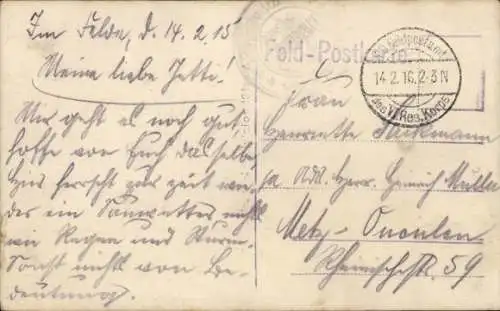 Im Felde, d. 14.2.15
Meine liebe Jetti!
Mir geht es noch gut
hoffe von Euch dasselbe
Hier herrscht zur Zeit wie-
der ein Sauwetter nichts
wie Regen und Sturm.
Sonst nichts von Be-
deutung.
Feld-Postkarte
14.2.16. 2-3 N
des VI. Res. Korps
Frau
Henriette
Adr. Herr. Heinrich Müller
Metz-Queulen
59